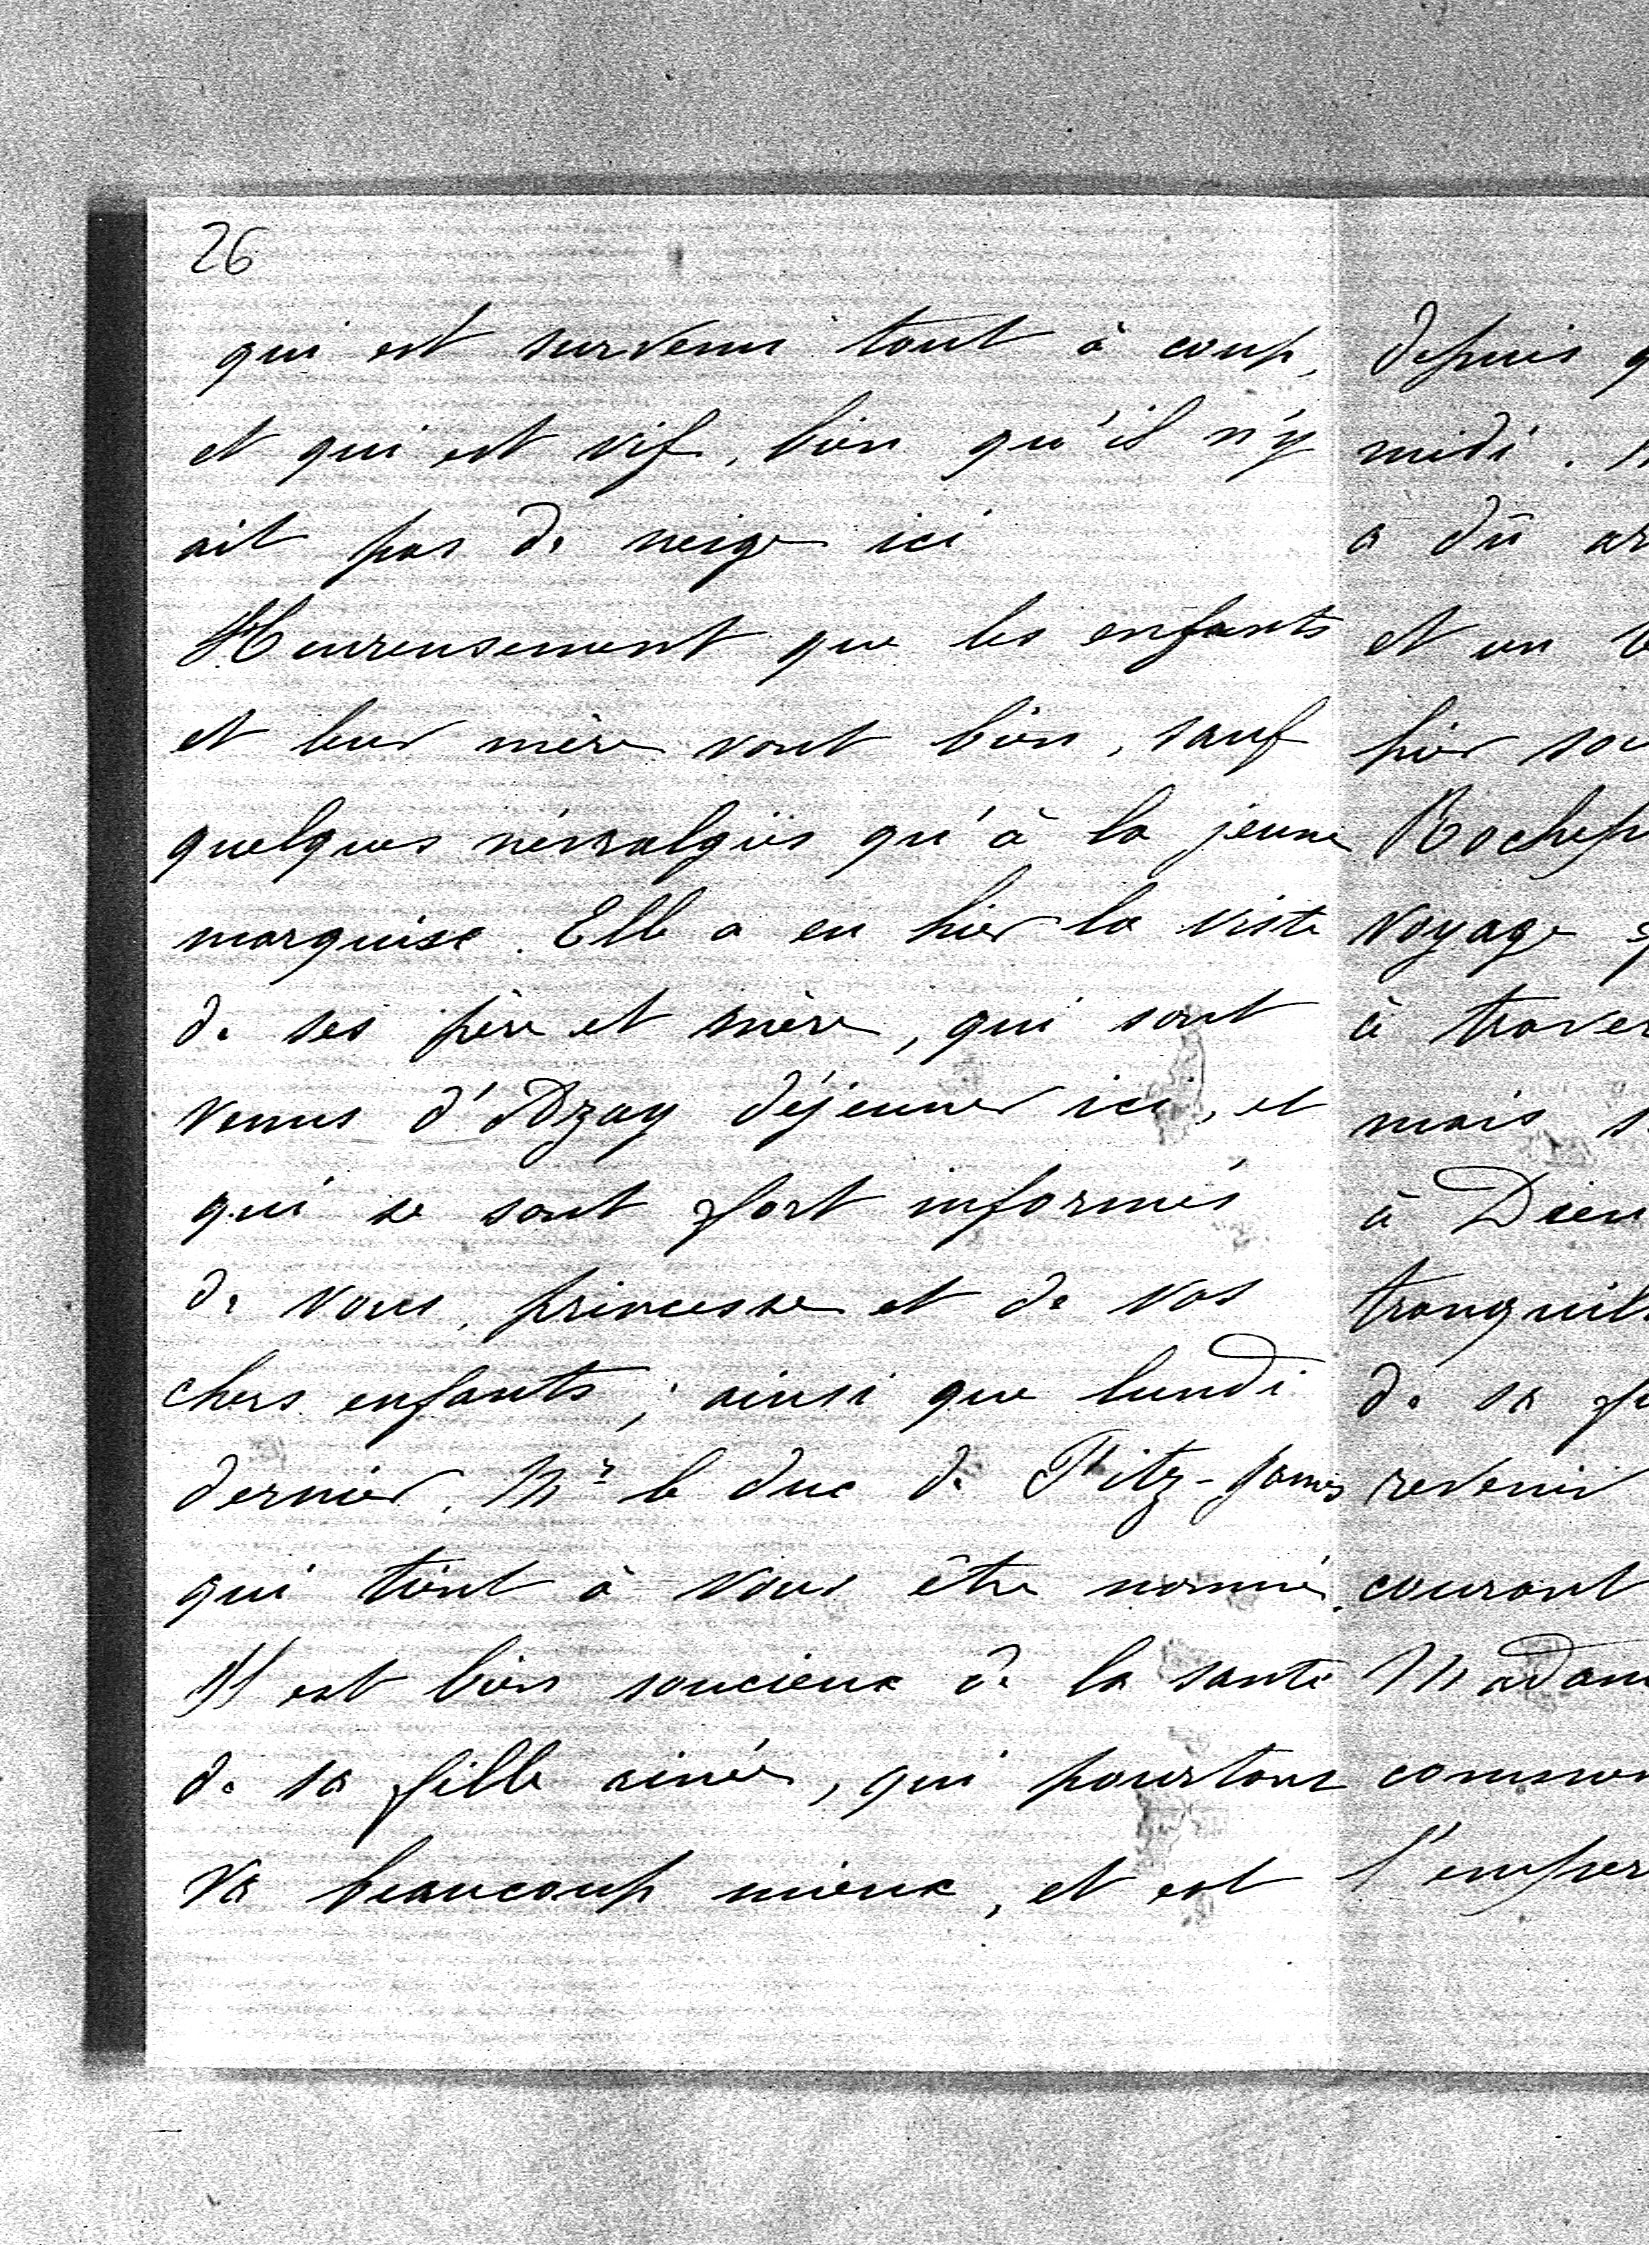 26
qui est survenu tout à coup,
et qui est vif, bien qu'il n'y
ait pas de neige ici
Heureusement que les enfants
et leur mère vont bien, sauf
quelques névralgies qu'à la jeune
marquise. Elle a eu hier la visite
de ses père et mère, qui sont
venus d'Azay déjeuner ici, et
qui se sont fort informés
de vous, princesse et de vos
chers enfants; ainsi que lundi
dernier, Mr le duc de Fitz-James
qui tient à vous être nommé.
Il est bien soucieux de la santé
de sa fille ainée, qui pourtant
va beaucoup mieux, et est
depuis
midi.
a dû
et un
hier
voyage
à
mais
à Dieu
de sa
revenir
courant